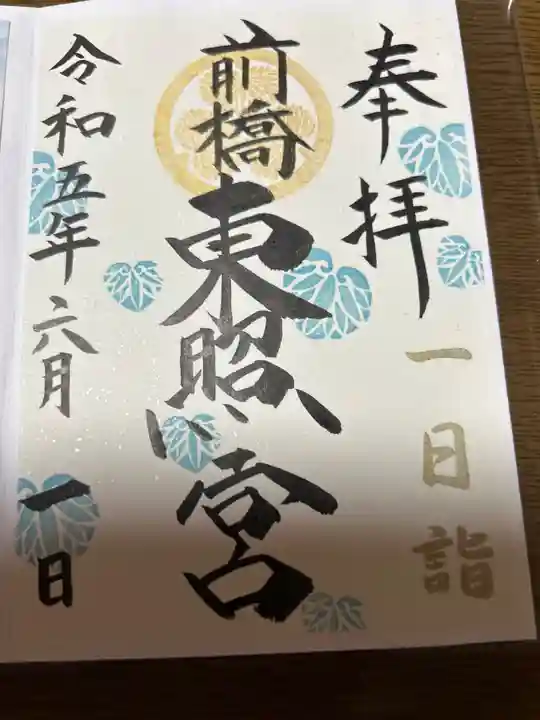 奉拝
一日詣
前橋東照宮
令和五年六月一日